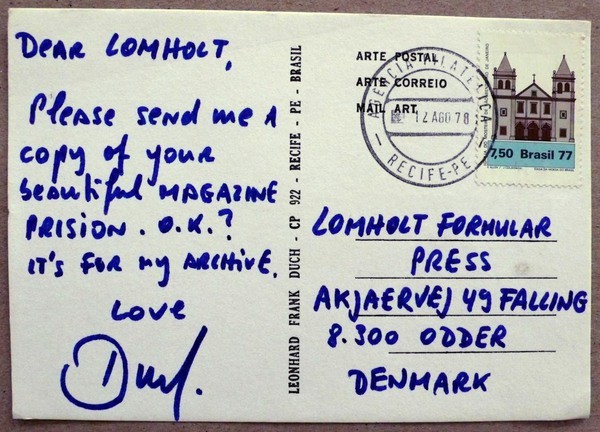 Dear Lomholt,
Please send me a
copy of your
beautiful MAGAZINE
PRISION. O.K.?
it's for my ARCHIVE.
Love
Duch.
LEONHARD FRANK DUCH - CP 922 - RECIFE - PE - BRASIL
ARTE POSTAL
ARTE CORREIO
MAIL ART
AGENCIA FILATELICA
12 AGO 78
RECIFE-PE
7,50 Brasil 77
LOMHOLT FORMULAR
PRESS
AKJAERVEJ 49 FALLING
8.300 ODDER
DENMARK